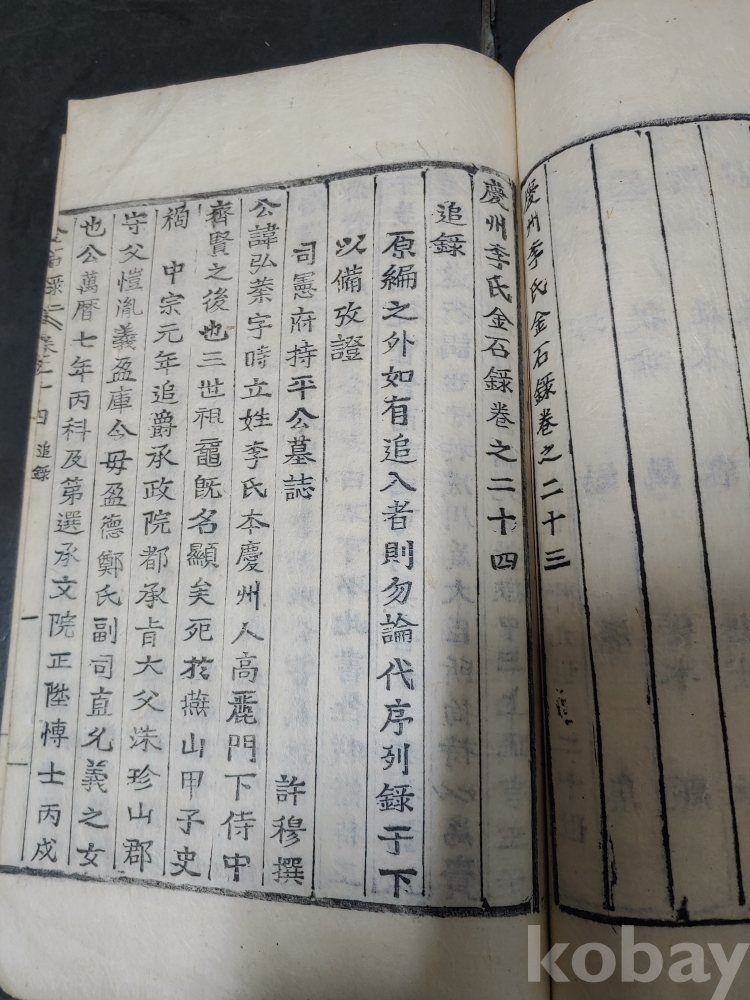 慶州李氏金石錄卷之二十三
慶州李氏金石錄卷之二十四
追錄
原編之外如有追入者則勿論代序列錄于下
以備攷證
司憲府持平公墓誌 許穆撰
公諱弘業字時立姓李氏本慶州人高麗門下侍中
齊賢之後也三世祖黿旣名顯矣死於燕山甲子史
禍 中宗元年追爵承政院都承旨大父洙珍山郡
守父愷胤義盈庫令母盈德鄭氏副司直允義之女
也公萬曆七年丙科及第選承文院正陞博士丙戍
四 追錄 一
kobay